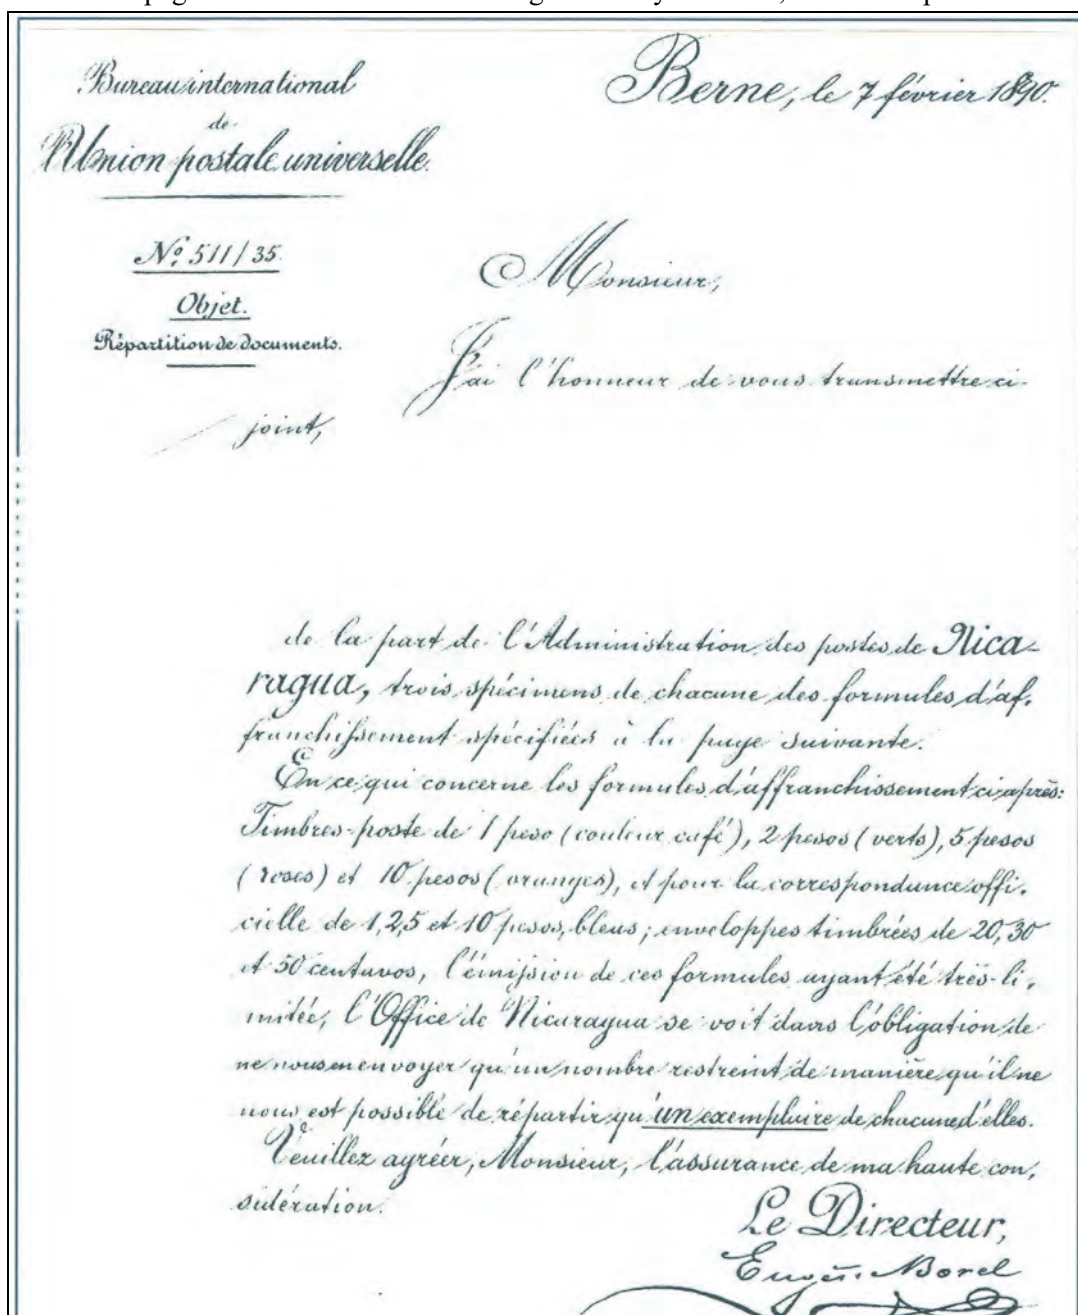 Bureau international
de
l'Union postale universelle.
Berne, le 7 février 1890.
Nº 511/35.
Objet.
Répartition de documents.
Monsieur,
J'ai l'honneur de vous transmettre ci-
joint,
de la part de l'Administration des postes de Nica-
ragua, trois spécimens de chacune des formules d'af-
franchissement spécifiées à la page suivante.
En ce qui concerne les formules d'affranchissement ci après:
Timbres-poste de 1 peso (couleur café), 2 pesos (verts), 5 pesos
(roses) et 10 pesos (oranges), et pour la correspondance offi-
cielle de 1, 2, 5 et 10 pesos, bleus; enveloppes timbrées de 20, 30
et 50 centavos, l'émission de ces formules ayant été très-li-
mitée, l'Office de Nicaragua se voit dans l'obligation de
ne nous en envoyer qu'un nombre restreint de manière qu'il ne
nous est possible de répartir qu'un exemplaire de chacune d'elles.
Veuillez agréer, Monsieur, l'assurance de ma haute con-
sidération.
Le Directeur,
Eugène Borel